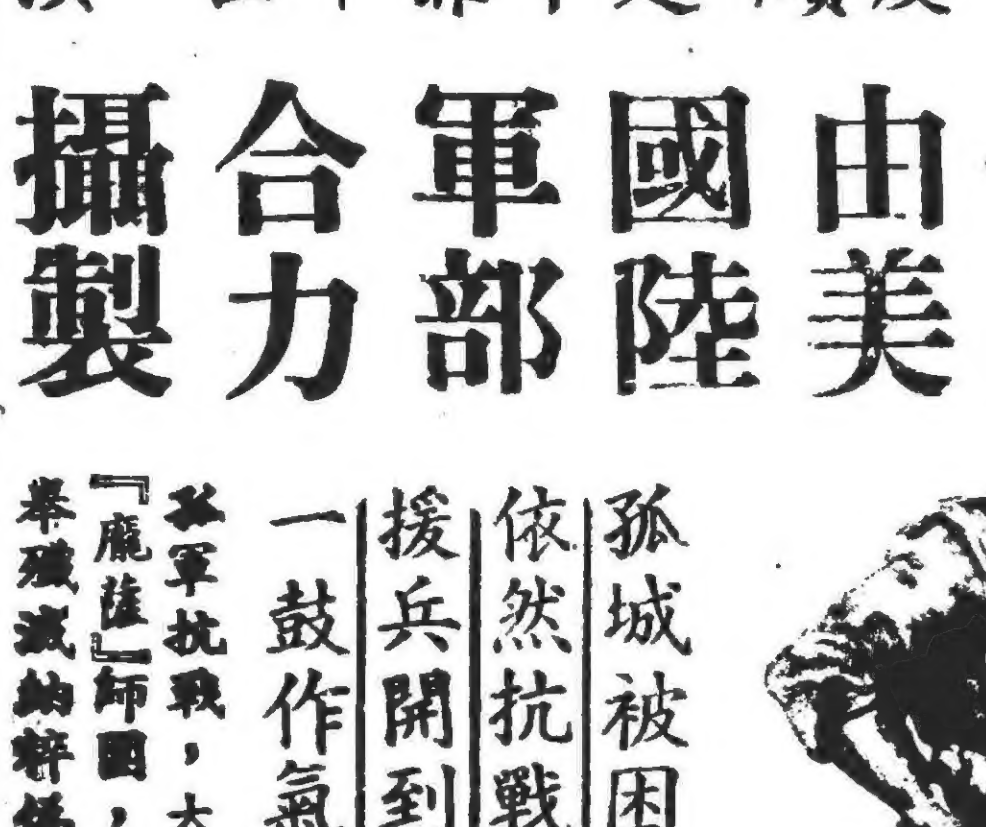 由美
國陸
軍部
合力
攝製
孤城被困
依然抗戰
援兵開到
一鼓作氣
孤軍抗戰，大
『龐薩』師團，
舉殲滅納粹